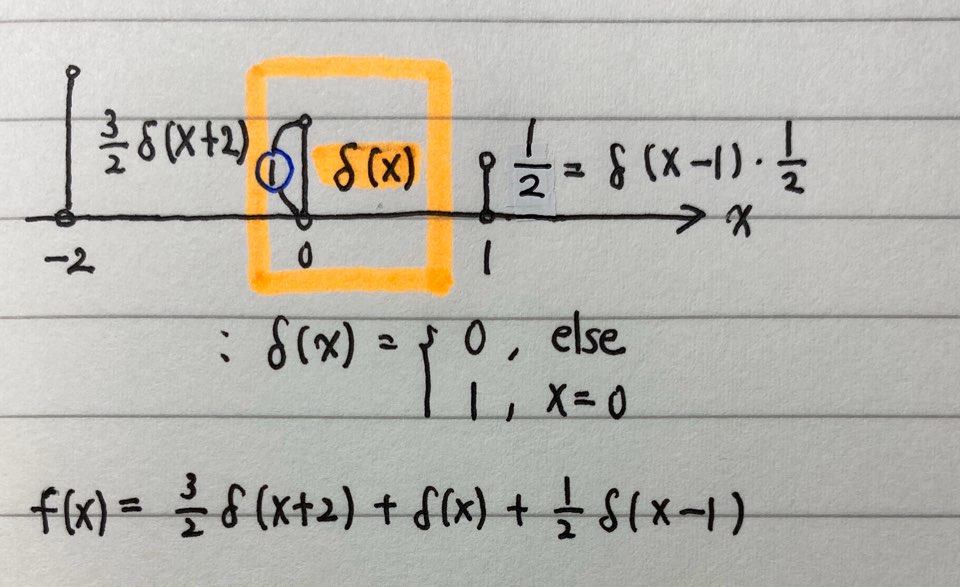 3/2 δ(x+2) 1 δ(x) 1/2 = δ(x-1) · 1/2
x
-2 0 1
: δ(x) = { 0 , else
1 , x = 0
f(x) = 3/2 δ(x+2) + δ(x) + 1/2 δ(x-1)